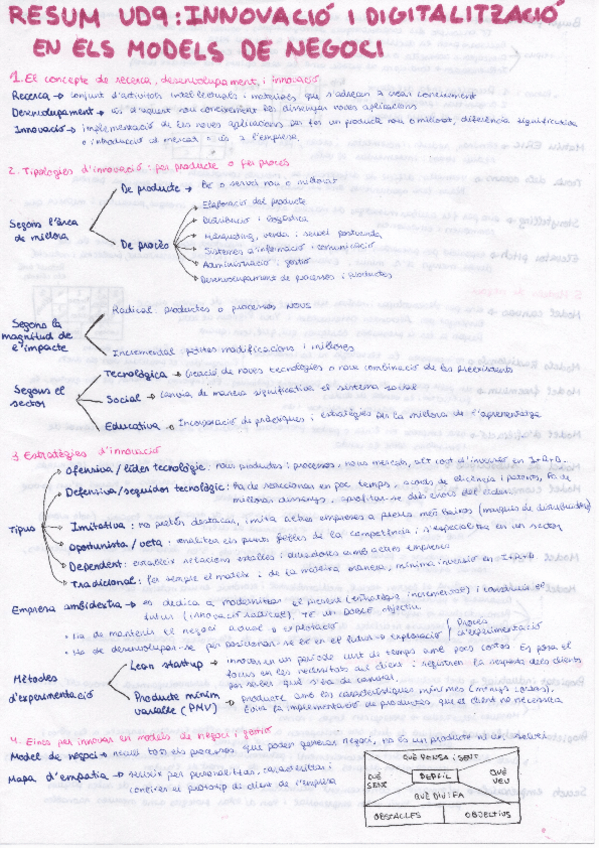 RESUM UD9: INNOVACIÓ I DIGITALITZACIÓ
EN ELS MODELS DE NEGOCI
1. El concepte de recerca, desenvolupament, i innovació
Recerca → conjunt d'activitats intel·lectuals i materials que s'adrecen a crear coneixement
Desenvolupament → ús d'aquest nou coneixement per dissenyar noves aplicacions
Innovació → implementació de les noves aplicacions per fer un producte nou o millorat, diferència significativa
o introducció al mercat o ús a l'empresa.
2. Tipologies d'innovació: per producte o per procés
Segons l'àrea
de millora
De producte → Bé o servei nou o millorat
De procés
Elaboració del producte
Distribució i logística
Màrqueting, venda i servei postvenda
Sistemes d'informació i comunicació
Administració i gestió
Desenvolupament de processos i productes
Segons la
magnitud de
l'impacte
Radical: productes o processos nous
Incremental: petites modificacions i millores
Segons el
sector
Tecnològica → Creació de noves tecnologies o nova combinació de les preexistents
Social → Canvia de manera significativa el sistema social
Educativa → Incorporació de pràctiques i estratègies per la millora de l'aprenentatge
3. Estratègies d'innovació
Tipus
Ofensiva / líder tecnològic: nous productes i processos, nous mercats, alt cost d'inversió en I+D.
Defensiva / seguidor tecnològic: Ha de reaccionar en poc temps, acords de llicència i patents, fa de
millorar dissenys, aprofitar-se dels errors del líder
Imitativa: no pretén destacar, imita altres empreses a preus més baixos (marques de distribuidor)
Oportunista / veta: analitza els punts febles de la competència i s'especialitza en un sector
Dependent: establir relacions estables i duradores amb altres empreses
Tradicional: fer sempre el mateix i de la mateixa manera, mínima inversió en I+D
Empresa ambidextra → es dedica a modernitzar el present (estratègia incremental) i construir el
futur (innovació radical). Té un DOBLE objectiu.
• Ha de mantenir el negoci actual → explotació
• Ha de desenvolupar-se per posicionar-se bé en el futur → exploració
Procura
d'experimentació
Mètodes
d'experimentació
Lean startup → innovar en un període curt de temps amb pocs costos. Es posa el
focus en les necessitats del client i segueixen la resposta dels clients
per saber què s'ha de canviar.
Producte mínim
variable (PMV)
→ producte amb les característiques mínimes (menys costos).
Evita la implementació de productes que el client no necessita
4. Eines per innovar en models de negoci i gestió
Model de negoci → recull tots els processos que poden generar negoci, no és un producte ni un servei
Mapa d'empatia → serveix per personalitzar, caracteritzar i
conèixer el prototip de client de l'empresa
QUÈ PENSA I SENT
QUÈ
SENT
PERFIL
QUÈ
VEU
QUÈ DIU I FA
OBSTACLES
OBJECTIUS